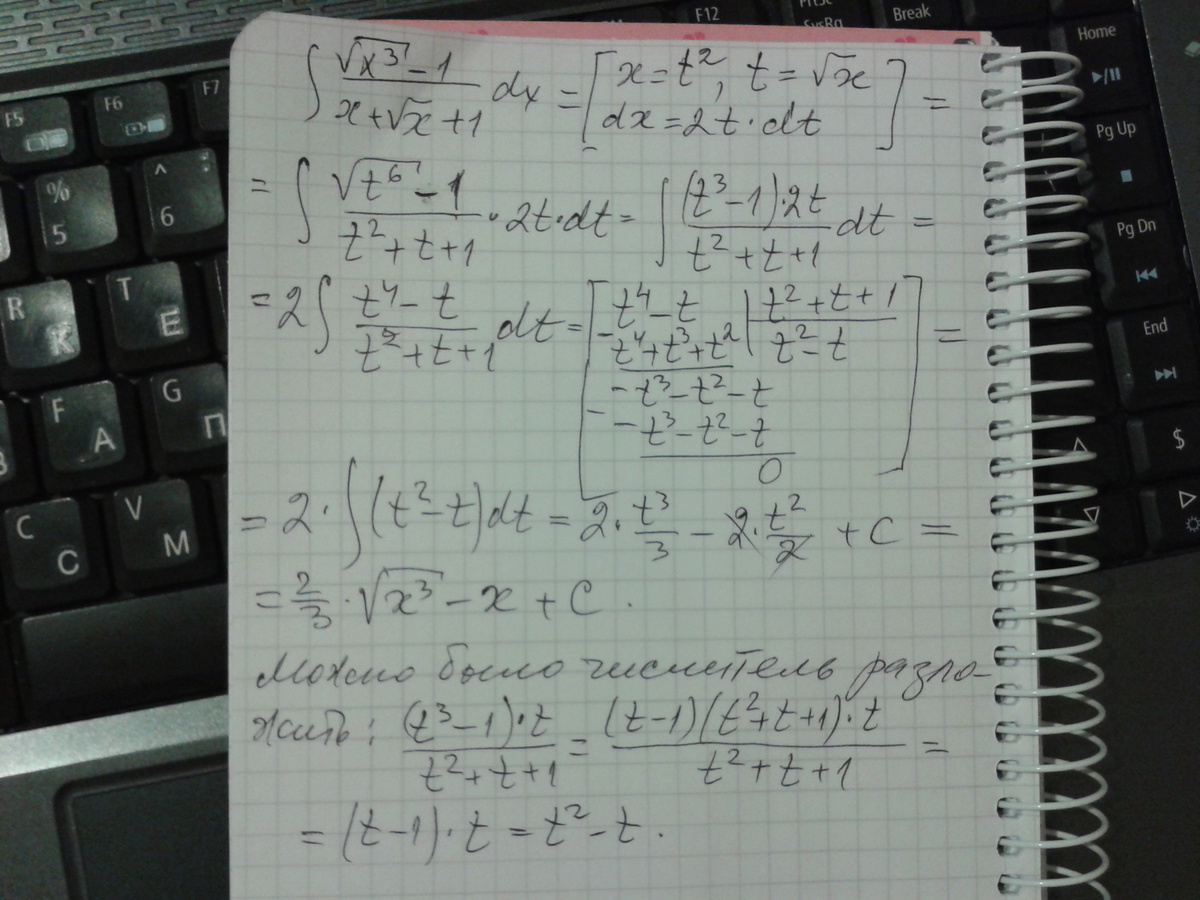 F12
PrtSc
SysRq
Break
Home
F5
F6
F7
Pg Up
%
5
^
6
:
Pg Dn
R
К
T
Е
End
F
А
G
П
$
C
С
V
М
∫ (√x³ - 1)/(x+√x+1) dx = [x=t², t=√x
dx=2t·dt] =
= ∫ (√t⁶ - 1)/(t²+t+1) · 2t·dt = ∫ ((t³-1)·2t)/(t²+t+1) dt =
= 2∫ (t⁴-t)/(t²+t+1) dt = [t⁴-t | t²+t+1
- t⁴+t³+t² | t²-t
-t³-t²-t
- -t³-t²-t
0] =
= 2·∫(t²-t)dt = 2·t³/3 - 2·t²/2 + C =
= 2/3·√x³ - x + C.
Можно было числитель разло-
жить: ((t³-1)·t)/(t²+t+1) = ((t-1)(t²+t+1)·t)/(t²+t+1) =
= (t-1)·t = t²-t.